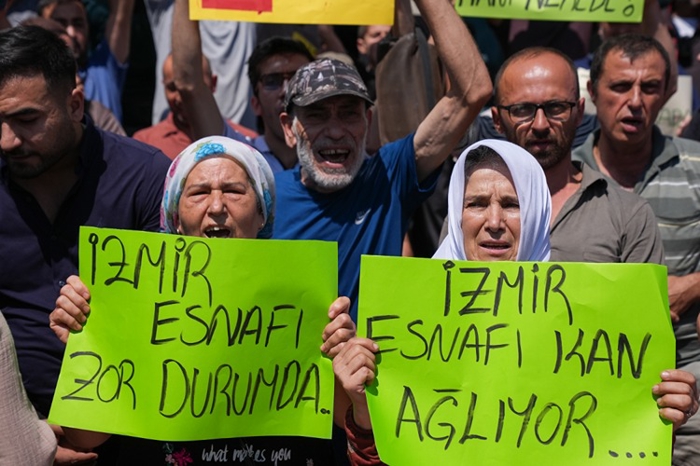 İZMİR
ESNAFI
ZOR DURUMDA.
İZMİR
ESNAFI KAN
AĞLIYOR....
what makes you